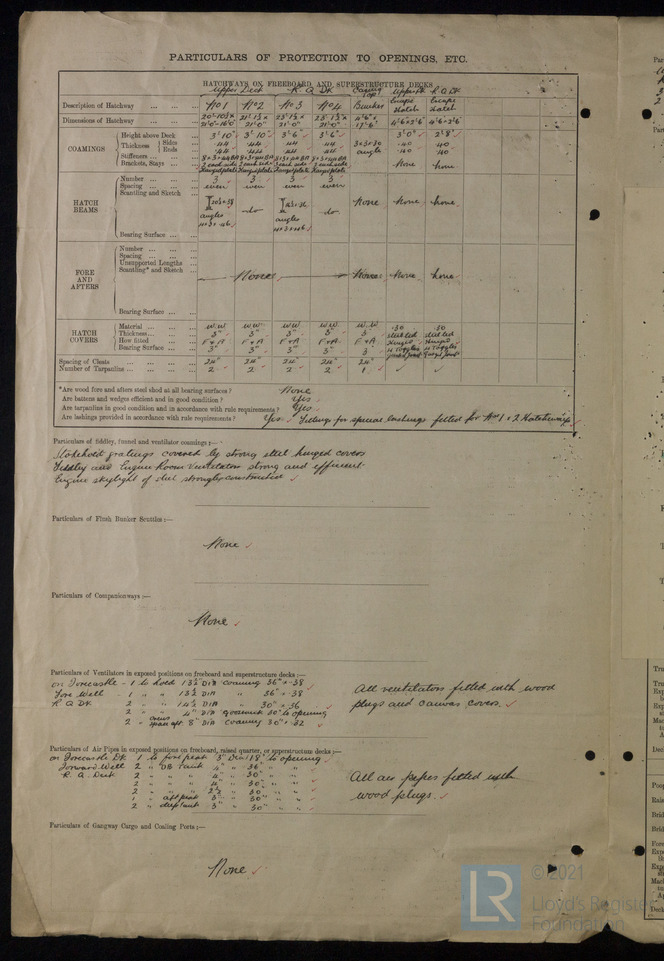 PARTICULARS OF PROTECTION TO OPENINGS, ETC.
HATCHWAYS ON FREEBOARD AND SUPERSTRUCTURE DECKS
Upper Deck R Q DK Casing Top Upper Dk R Q DK
Description of Hatchway No 1 No 2 No 3 No 4 Bunker Escape Hatch Escape Hatch
Dimensions of Hatchway 21'0" 21'0" 21'0" 4'6" x 17'6" 4'6 x 2'6 4'6 x 2'6
COAMINGS
Height above Deck 3' 10" 3' 10" 3' 6" 3' 6" 3'0" 2'8"
Thickness Sides .44 .44 .44 .44 3x3x30 angle .40 .40
Ends .44 .44 .44 .44 .40 .40
Stiffeners
Brackets, Stays 2 each side 2 each side 2 each side 2 each side None None
HATCH BEAMS
Number 3 3 3 3
Spacing even even even even
Scantling and Sketch angles do angles do None None None
Bearing Surface
FORE AND AFTERS
Number
Spacing
Unsupported Lengths
Scantling* and Sketch None None None None
Bearing Surface
HATCH COVERS
Material W.W W.W W.W W.W W.W .30 .30
Thickness 3" 3" 3" 3" 3" steel lid steel lid
How fitted F & A F & A F & A F & A F & A Hinged Hinged
Bearing Surface 3" 3" 3" 3" 3 Toggles Toggles
Spacing of Cleats 24" 24" 24" 24" 24"
Number of Tarpaulins 2 2 2 2 1
*Are wood fore and afters steel shod at all bearing surfaces? None
Are battens and wedges efficient and in good condition? Yes
Are tarpaulins in good condition and in accordance with rule requirements? Yes
Are lashings provided in accordance with rule requirements? Yes. Fittings for special lashings fitted for Nos 1 & 2 Hatchways
Particulars of fiddley, funnel and ventilator coamings:—
Stokehold gratings covered by strong steel hinged covers
Fiddley and Engine Room Ventilators strong and efficient
Engine skylight of steel strongly constructed
Particulars of Flush Bunker Scuttles:—
None
Particulars of Companionways:—
None
Particulars of Ventilators in exposed positions on freeboard and superstructure decks:—
on Forecastle - 1 to hold 13½ DIA Coaming 36" x .38
Fore Well - 1 " " 13½ DIA " 36" x .38
R Q DK 2 " " 14½ DIA " 30" x .36
2 " " 4" DIA gooseneck 30" to opening
2 " crews space aft 8" DIA Coaming 30" x .32
All ventilators fitted with wood
plugs and canvas covers.
Particulars of Air Pipes in exposed positions on freeboard, raised quarter, or superstructure decks:—
on Forecastle DK 1 to fore peak 3" Dia 18" to opening
Forward Well 2 " DB Tank 4" " 36" " "
R. Q. Deck 2 " " 4" " 30" " "
2 " " 4" " 30" " "
2 " " 2½ " 30 " "
1 " aft peak 3" " 30" " "
2 " deep tank 3" " 30" " "
All air pipes fitted with
wood plugs.
Particulars of Gangway Cargo and Coaling Ports:—
None
LR
© 2021
Lloyd's Register
Foundation